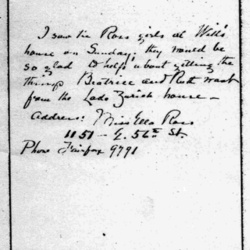 I saw the Ross girls at Will's
house on Sunday, they would be
so glad to help about getting the
things Beatrice and Ruth want
from the Lads Zurich house -
Address: Miss Ella Ross
1151 - E. 56th St.
Phone Fairfax 9791